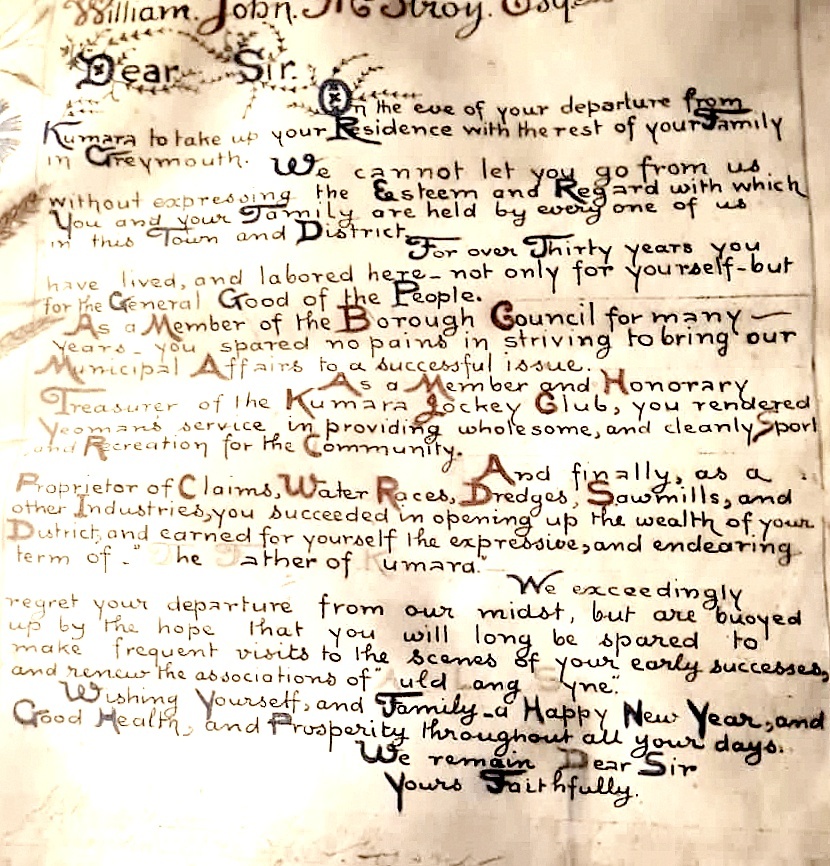 William. John. McIlroy. Esqre
Dear Sir.
On the eve of your departure from
Kumara to take up your Residence with the rest of your Family
in Greymouth. We cannot let you go from us
without expressing the Esteem and Regard with which
You and your Family are held by every one of us
in this Town and District.
For over Thirty years you
have lived, and labored here - not only for yourself - but
for the General Good of the People.
As a Member of the Borough Council for many —
years - you spared no pains in striving to bring our
Municipal Affairs to a successful issue.
As a Member and Honorary
Treasurer of the Kumara Jockey Club, you rendered
Yeomans service in providing wholesome, and cleanly Sport
and Recreation for the Community.
And finally, as a
Proprietor of Claims, Water Races, Dredges, Sawmills, and
other Industries, you succeeded in opening up the wealth of your
District, and earned for yourself the expressive, and endearing
term of - "The Father of Kumara."
We exceedingly
regret your departure from our midst, but are buoyed
up by the hope that you will long be spared to
make frequent visits to the scenes of your early successes,
and renew the associations of "Auld Lang Syne".
Wishing Yourself, and Family - a Happy New Year, and
Good Health, and Prosperity throughout all your days.
We remain Dear Sir
Yours Faithfully.